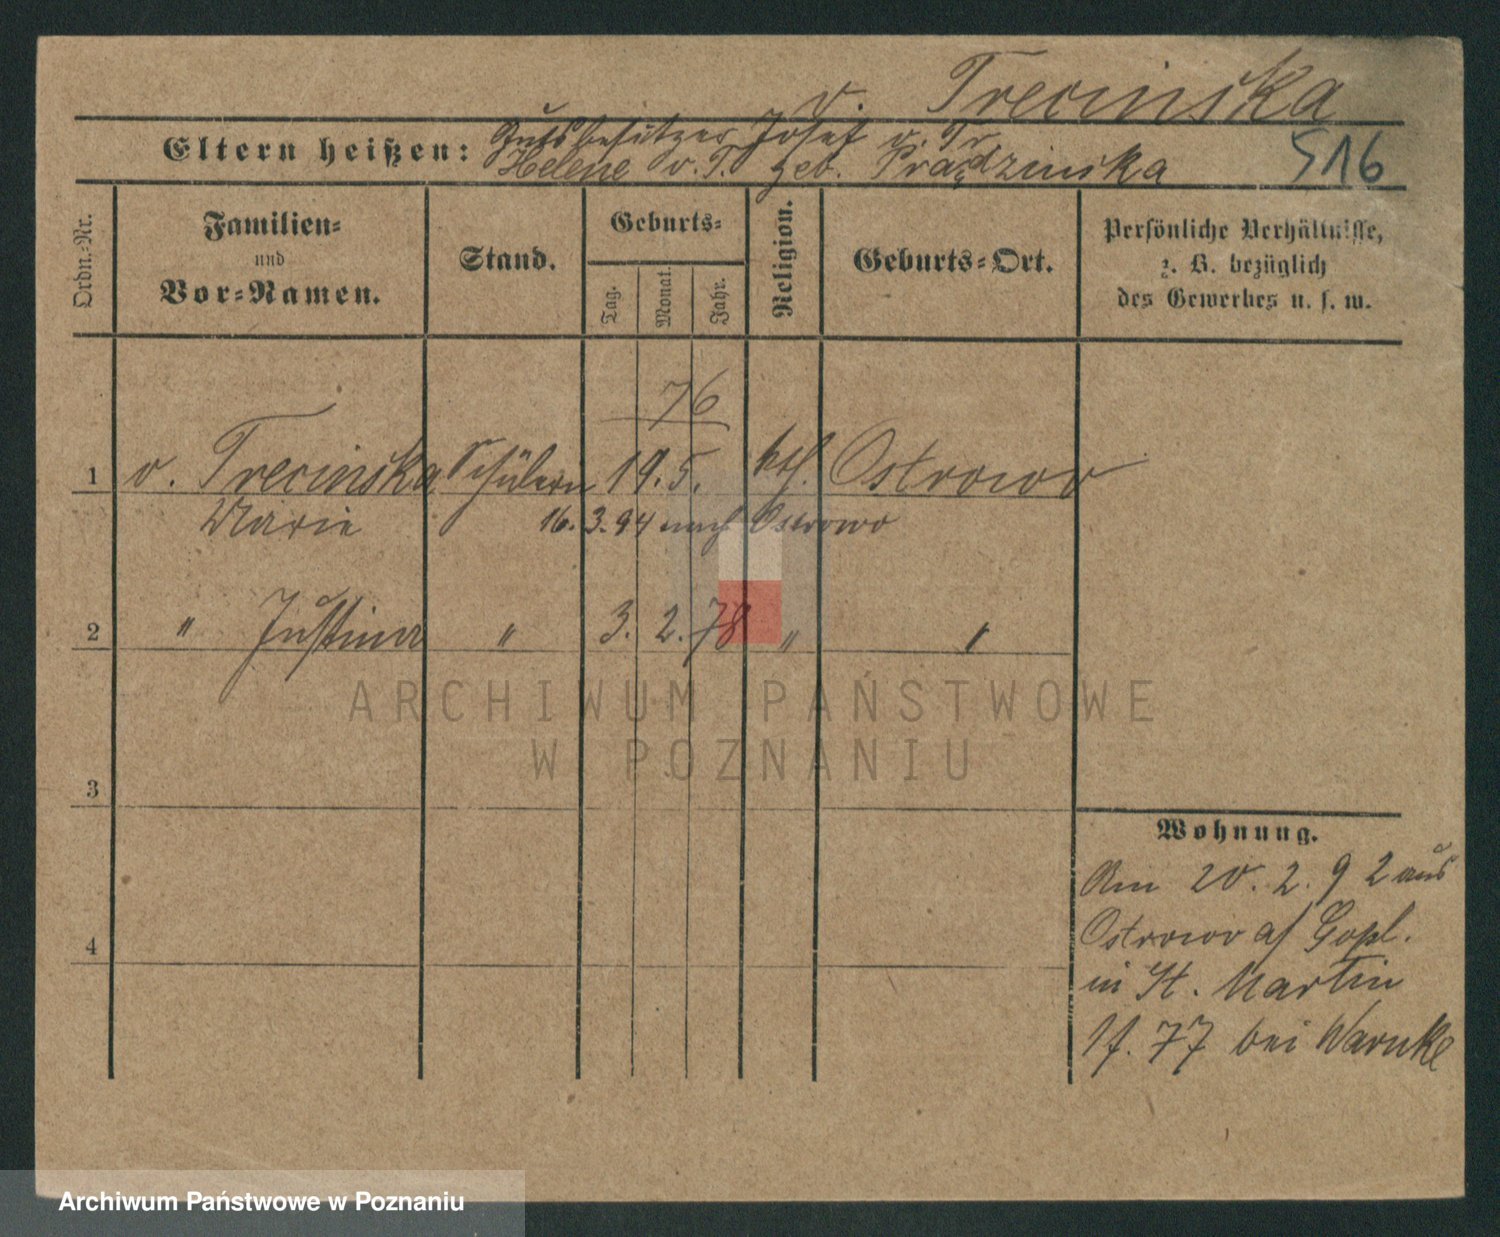 v. Trecinska
Eltern heißen: Gutsbesitzer Josef v. Tr
Helene v. T. geb. Prądzinska
516
Ordn.-Nr.
Familien-
und
Vor-Namen.
Stand.
Geburts-
Tag.
Monat.
Jahr.
Religion.
Geburts-Ort.
Persönliche Verhältnisse,
z. B. bezüglich
des Gewerbes u. s. w.
76
1 v. Trecinska Schülerin 19. 5. ktl. Ostrowo
Marie 16. 3. 94 nach Ostrowo
2 " Justina " 3. 2. 78 " "
ARCHIWUM PAŃSTWOWE
W POZNANIU
3
4
Wohnung.
Am 20. 2. 92 aus
Ostrowo a/ Gopl.
in St. Martin
77 bei Warnke
Archiwum Państwowe w Poznaniu